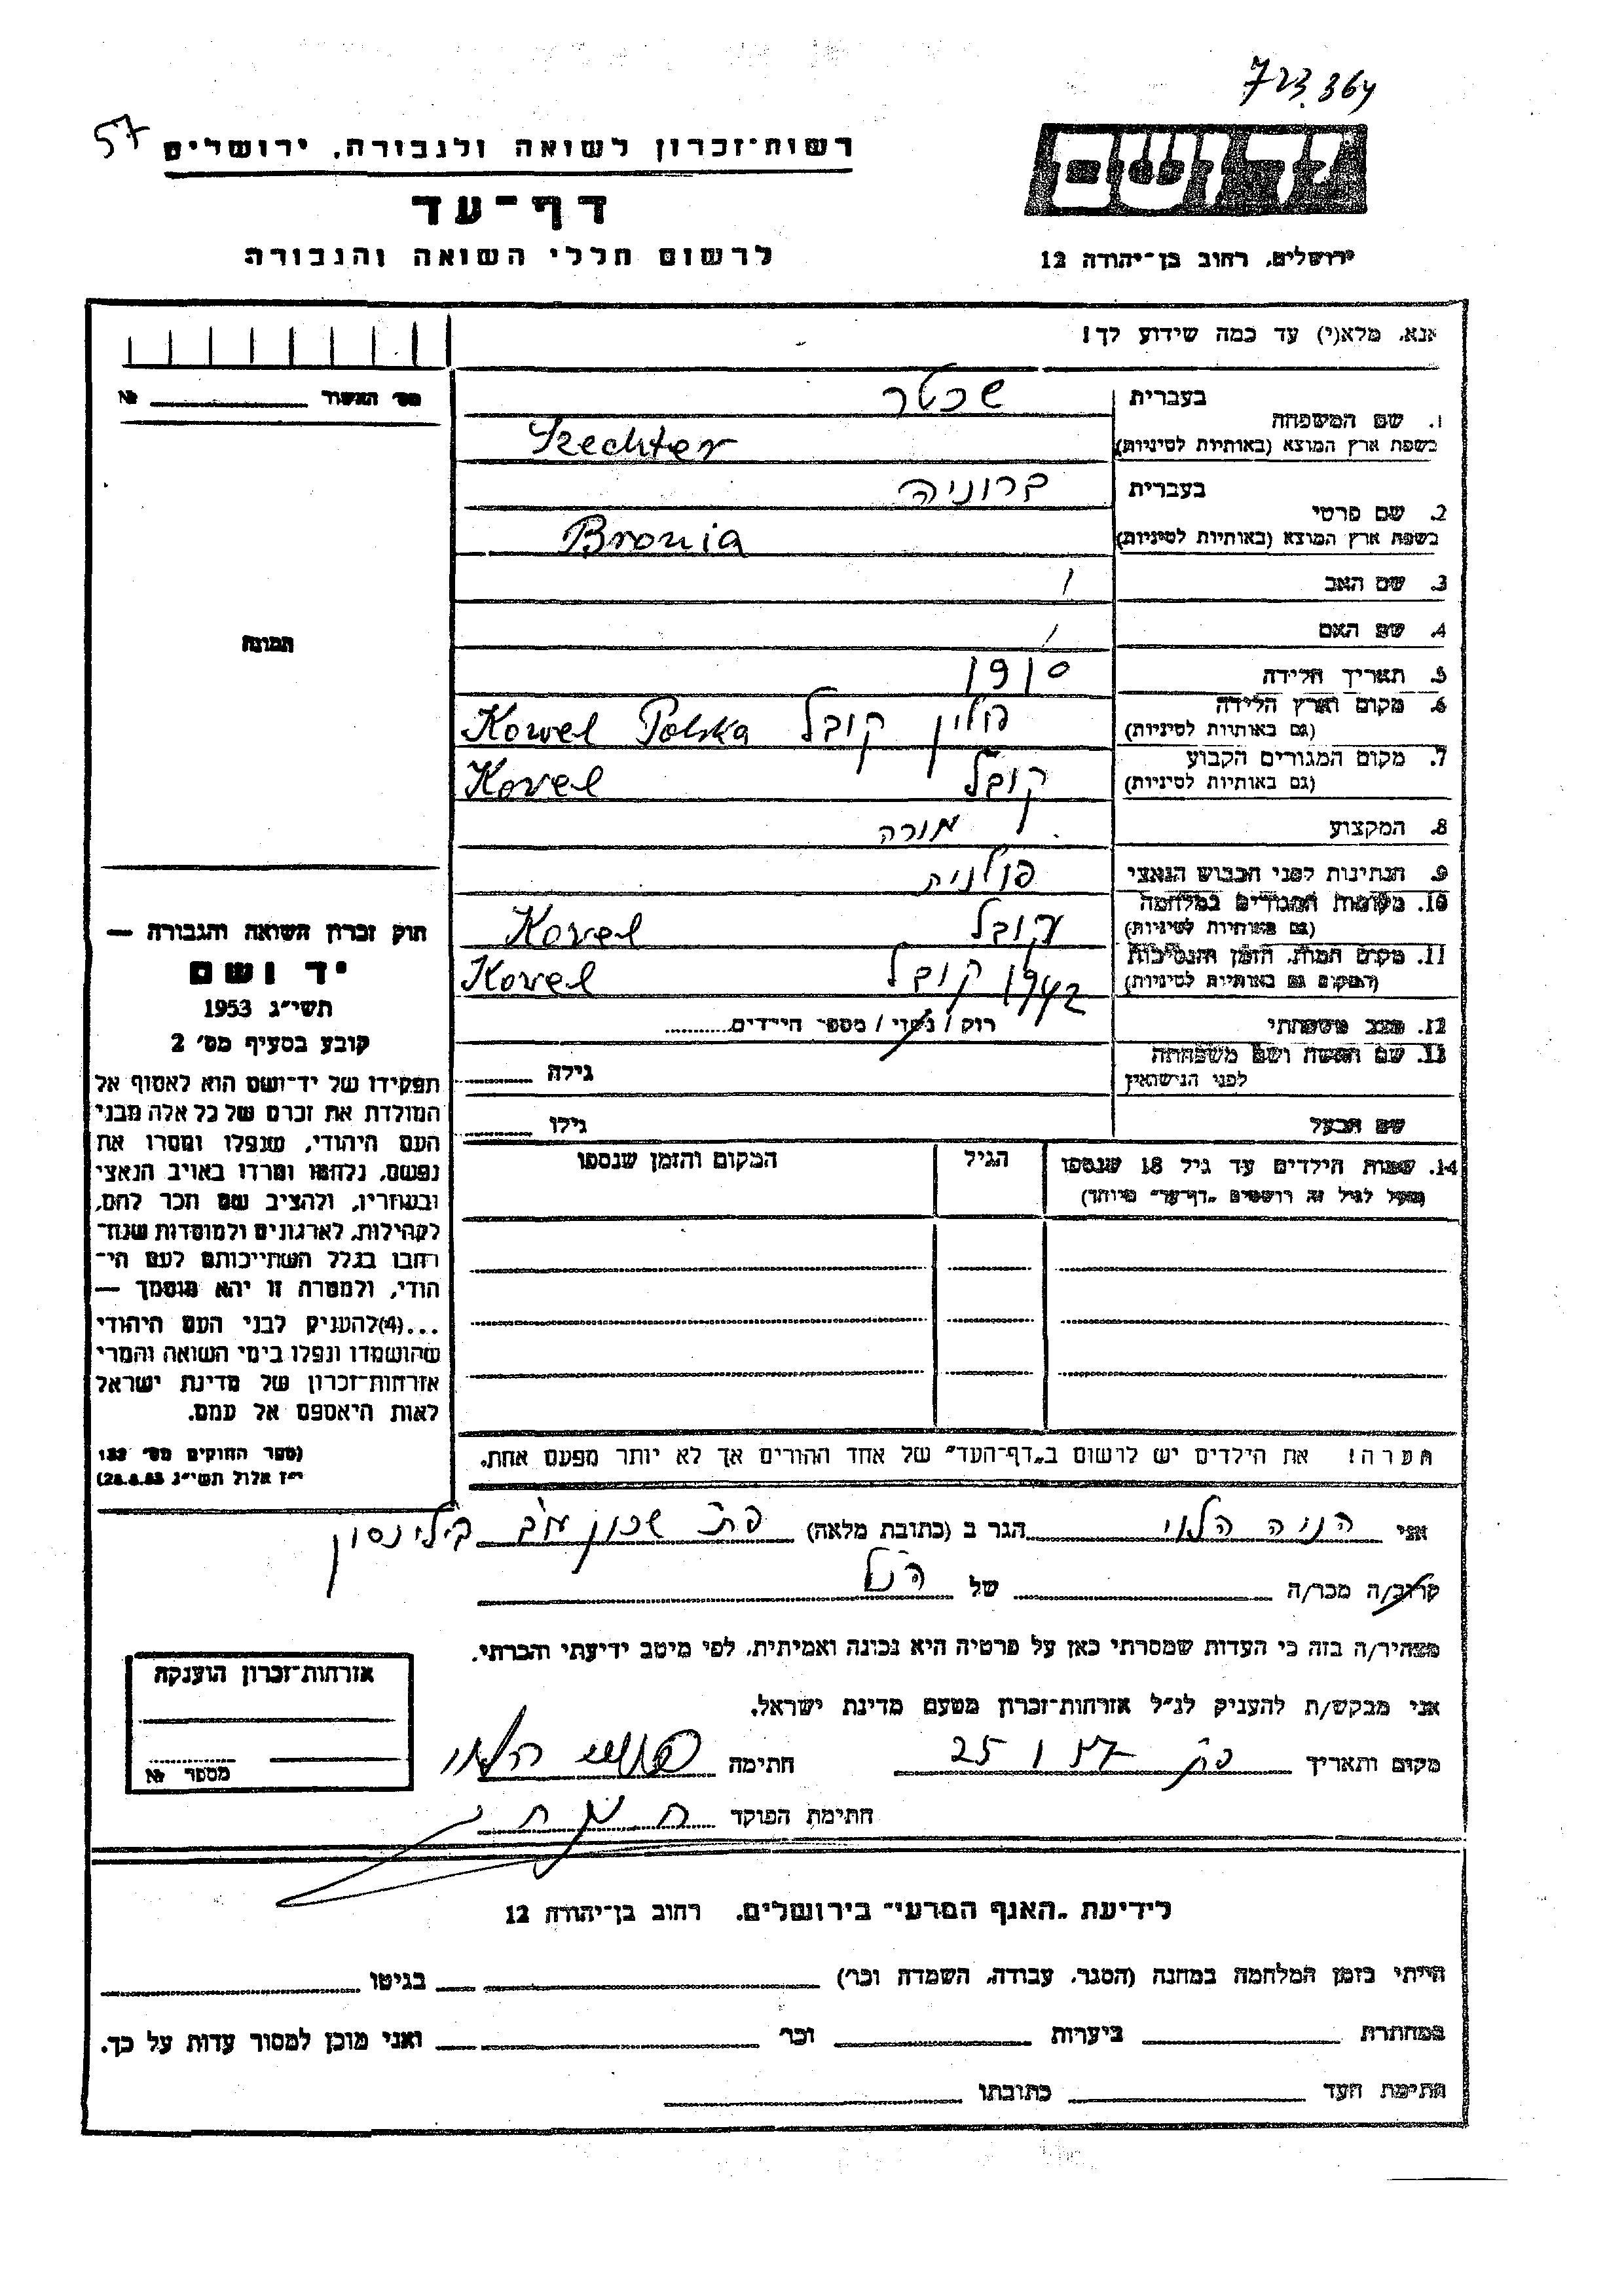 723.364
57
רשות־זכרון לשואה ולגבורה, ירושלים
דף־עד
לרשום חללי השואה והגבורה
יד ושם
ירושלים, רחוב בן־יהודה 12
אנא, מלא(י) עד כמה שידוע לך!
מס׳ האשור №
1. שם המשפחה בעברית שכטר
בשפת ארץ המוצא (באותיות לטיניות) Szechter
2. שם פרטי בעברית ברוניה
בשפת ארץ המוצא (באותיות לטיניות) Bronia
3. שם האב /
4. שם האם /
תמונה
5. תאריך הלידה 1910
6. מקום וארץ הלידה (גם באותיות לטיניות) פולין קובל Kowel Polska
7. מקום המגורים הקבוע (גם באותיות לטיניות) קובל Kovel
8. המקצוע מורה
9. הנתינות לפני הכבוש הנאצי פולנית
10. מקומות המגורים במלחמה (גם באותיות לטיניות) קובל Kovel
11. מקום המות, הזמן והנסיבות (המקום גם באותיות לטיניות) 1942 קובל Kovel
12. מצב משפחתי רוק / נשוי / מספר הילדים
13. שם האשה ושם משפחתה לפני הנישואין גילה
שם הבעל גילו
14. שמות הילדים עד גיל 18 שנספו הגיל המקום והזמן שנספו
(מעל לגיל זה רושמים „דף־עד״ מיוחד)
הערה! את הילדים יש לרשום ב„דף־העד״ של אחד ההורים אך לא יותר מפעם אחת.
חוק זכרון השואה והגבורה —
יד ושם
תשי״ג 1953
קובע בסעיף מס׳ 2
תפקידו של יד־ושם הוא לאסוף אל
המולדת את זכרם של כל אלה מבני
העם היהודי, שנפלו ומסרו את
נפשם, נלחמו ומרדו באויב הנאצי
ובעוזריו, ולהציב שם וזכר להם,
לקהילות, לארגונים ולמוסדות שנח־
רבו בגלל השתייכותם לעם הי־
הודי, ולמטרה זו יהא מוסמך —
...(4)להעניק לבני העם היהודי
שהושמדו ונפלו בימי השואה והמרי
אזרחות־זכרון של מדינת ישראל
לאות היאספם אל עמם.
(ספר החוקים מס׳ 132
י״ז אלול תשי״ג 28.8.53)
אני הניה הלוי הגר ב (כתובת מלאה) פ״ת שכון ע״ב בילינסון
קרוב/ה מכר/ה של הנ״ל
מצהיר/ה בזה כי העדות שמסרתי כאן על פרטיה היא נכונה ואמיתית, לפי מיטב ידיעתי והכרתי.
אני מבקש/ת להעניק לנ״ל אזרחות־זכרון מטעם מדינת ישראל.
מקום ותאריך פ״ת 25 1 57 חתימה הלוי
חתימת הפוקד
אזרחות־זכרון הוענקה
מספר №
לידיעת „האגף המדעי״ בירושלים, רחוב בן־יהודה 12
הייתי בזמן המלחמה במחנה (הסגר, עבודה, השמדה וכר׳) בגיטו
במחתרת ביערות וכר׳ ואני מוכן למסור עדות על כך.
חתימת העד כתובתו